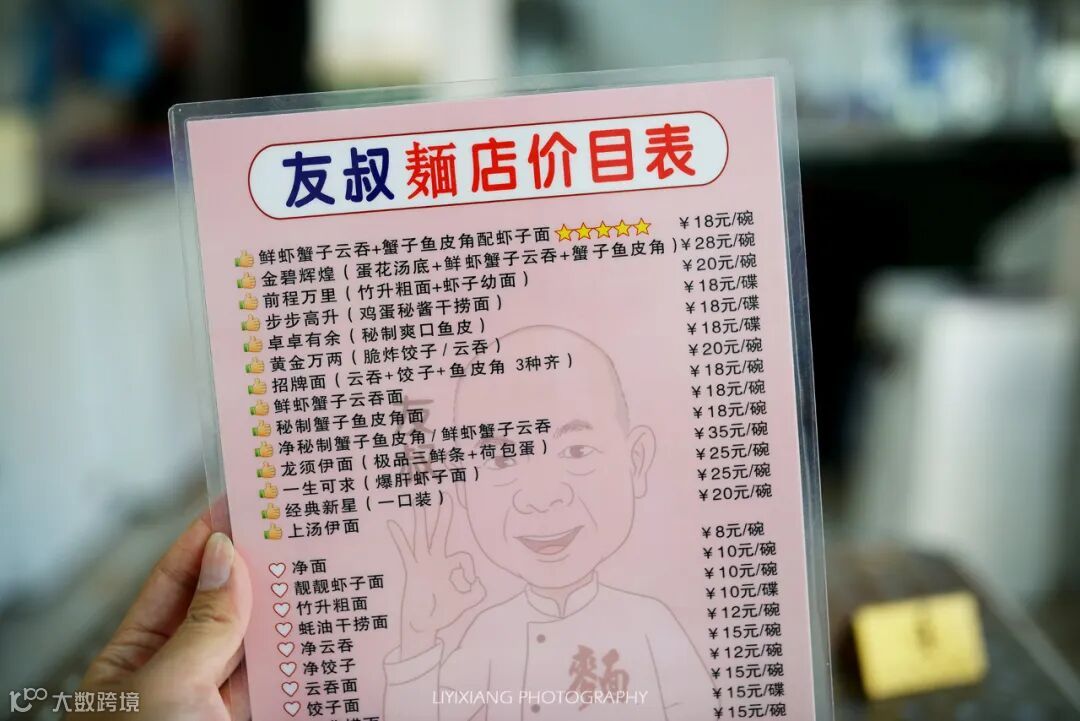 友叔麺店价目表
鲜虾蟹子云吞+蟹子鱼皮角配虾子面 ¥18元/碗
金碧辉煌(蛋花汤底+鲜虾蟹子云吞+蟹子鱼皮角) ¥28元/碗
前程万里(竹升粗面+虾子幼面) ¥20元/碗
步步高升(鸡蛋秘酱干捞面) ¥18元/碟
卓卓有余(秘制爽口鱼皮) ¥18元/碟
黄金万两(脆炸饺子/云吞) ¥18元/碟
招牌面(云吞+饺子+鱼皮角 3种齐) ¥20元/碗
鲜虾蟹子云吞面 ¥18元/碗
秘制蟹子鱼皮角面 ¥18元/碗
净秘制蟹子鱼皮角/鲜虾蟹子云吞 ¥18元/碗
龙须伊面(极品三鲜条+荷包蛋) ¥35元/碗
一生可求(爆肝虾子面) ¥25元/碗
经典新星(一口装) ¥25元/碗
上汤伊面 ¥20元/碗
净面 ¥8元/碗
靓靓虾子面 ¥10元/碗
竹升粗面 ¥10元/碗
蚝油干捞面 ¥10元/碟
净云吞 ¥12元/碗
净饺子 ¥15元/碗
云吞面 ¥12元/碗
饺子面 ¥15元/碗
¥15元/碟
¥15元/碗
友叔
麵
LIYIXIANG PHOTOGRAPHY
大数跨境